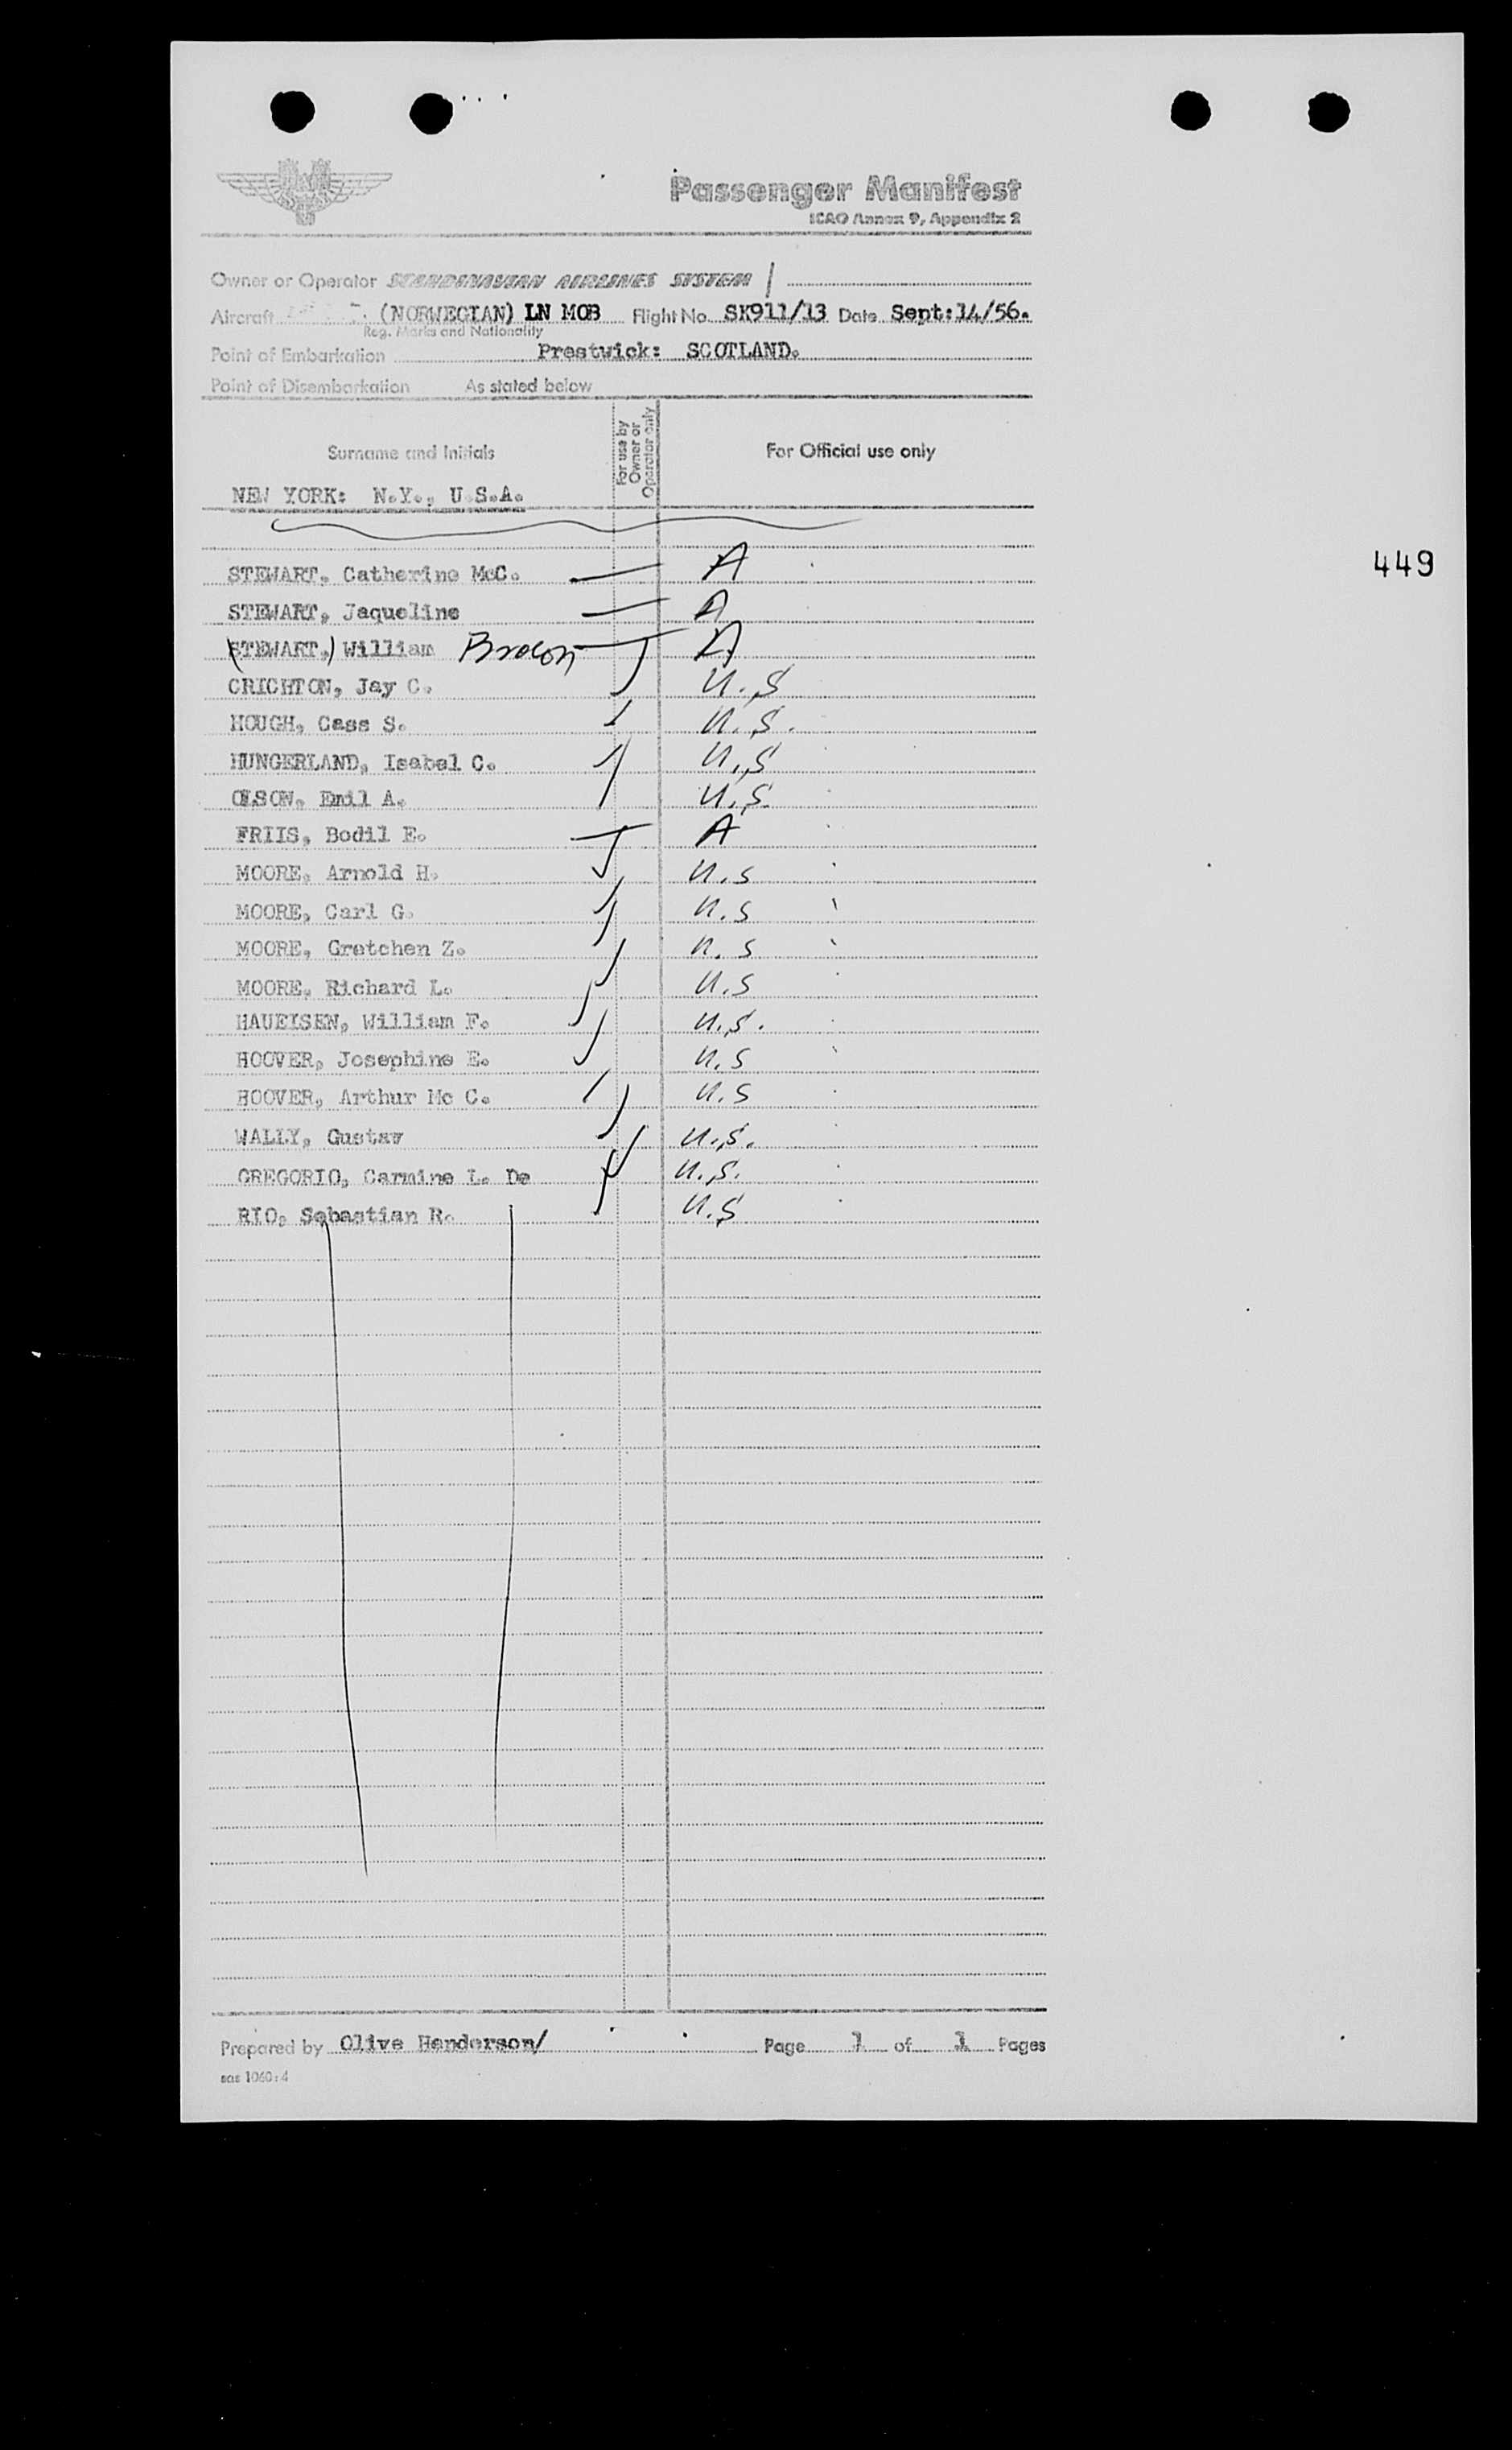 Passenger Manifest
ICAO Annex 9, Appendix 2
Owner or Operator SCANDINAVIAN AIRLINES SYSTEM /
Aircraft (NORWEGIAN) LN MOB Flight No. SK911/13 Date Sept:14/56.
Reg. Marks and Nationality
Point of Embarkation Prestwick: SCOTLAND.
Point of Disembarkation As stated below
Surname and Initials For use by Owner or Operator only For Official use only
NEW YORK: N.Y., U.S.A.
449
STEWART, Catherine McC. A
STEWART, Jaqueline A
(STEWART,) William A
CRICHTON, Jay C. U.S
HOUGH, Cass S. U.S.
HUNGERLAND, Isabel C. U.S
OLSON, Emil A. U.S.
FRIIS, Bodil E. A
MOORE, Arnold H. U.S
MOORE, Carl G. U.S
MOORE, Gretchen Z. U.S
MOORE, Richard L. U.S
HAUEISEN, William F. U.S.
HOOVER, Josephine E. U.S
HOOVER, Arthur Mc C. U.S
WALLY, Gustav U.S.
GREGORIO, Carmine L. De U.S.
RIO, Sebastian R. U.S
Prepared by Olive Henderson/ Page 1 of 1 Pages
sas 1060:4